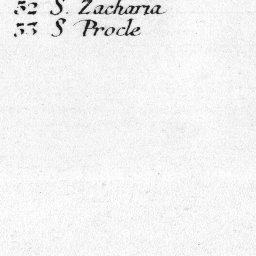 52 S. Zacharia
53 S Procle